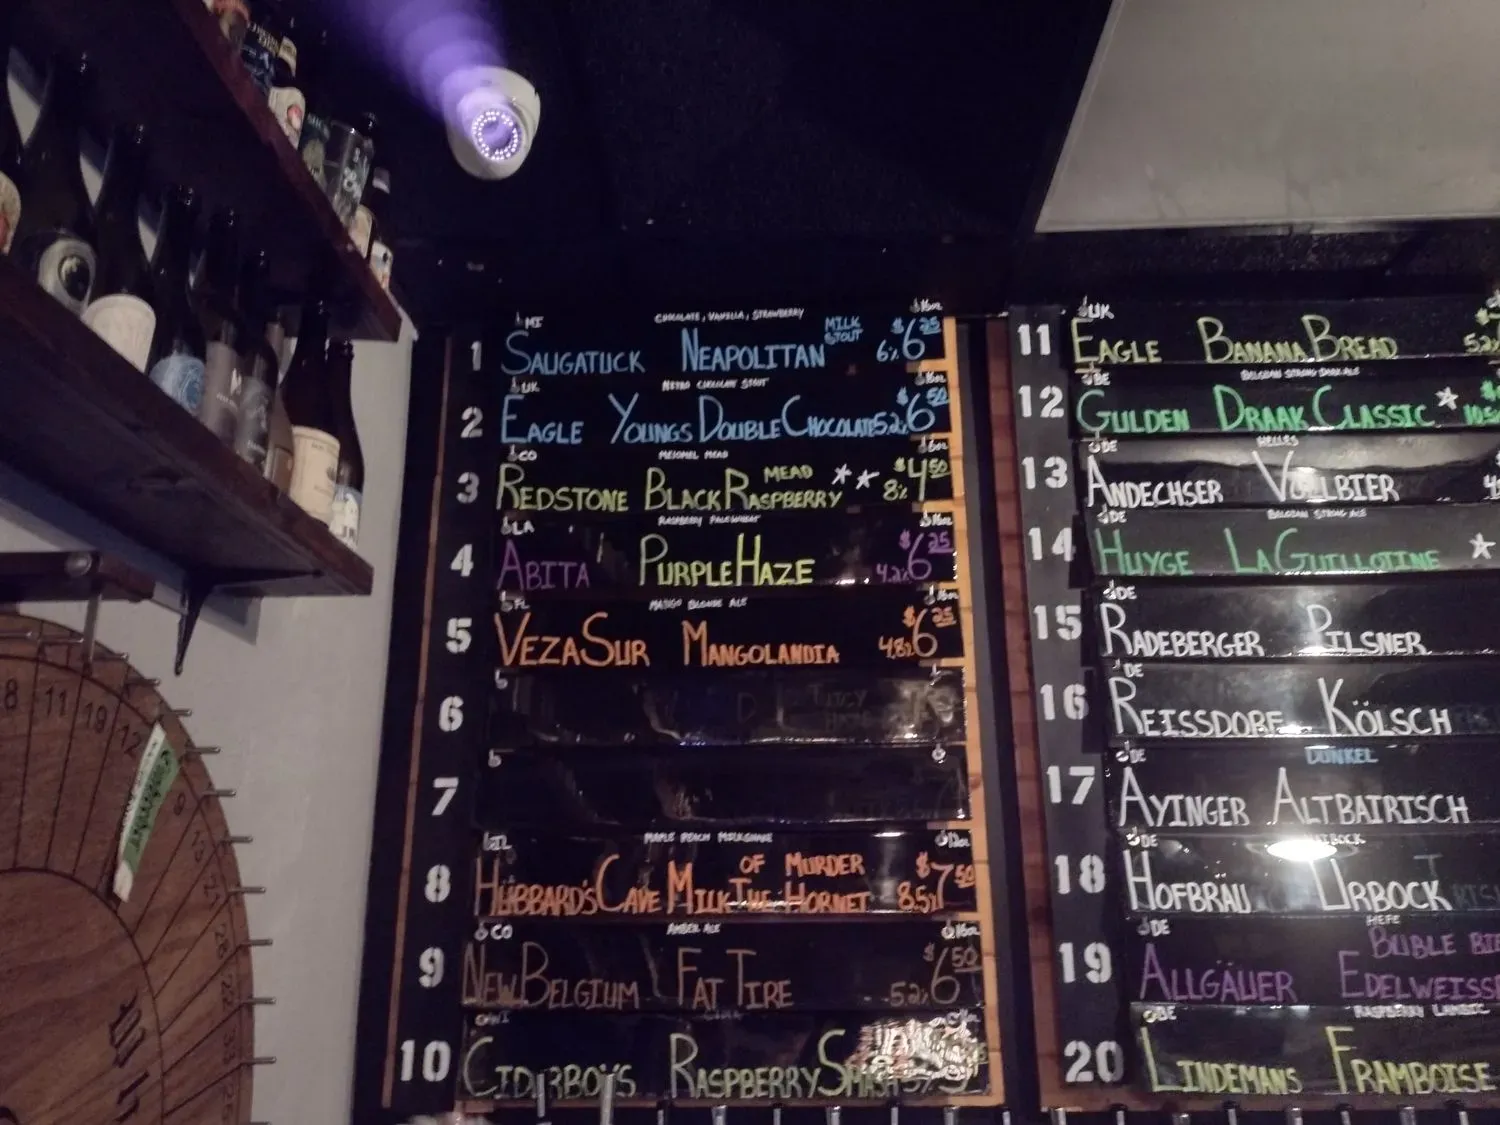 MI CHOCOLATE, VANILLA, STRAWBERRY 16oz
1 SAUGATUCK NEAPOLITAN MILK STOUT 6% $6.25
UK NITRO CHOCOLATE STOUT 16oz
2 EAGLE YOUNGS DOUBLE CHOCOLATE 5.2% $6.50
CO MEAD 6oz
3 REDSTONE BLACK RASPBERRY MEAD 8% $4.50
LA RASPBERRY PALE WHEAT 16oz
4 ABITA PURPLE HAZE 4.2% $6.25
FL MANGO BLONDE ALE 16oz
5 VEZA SUR MANGOLANDIA 4.8% $6.25
6 JUICY
7
IL MAPLE PEACH MILKSHAKE 12oz
8 HUBBARD'S CAVE MILK OF MURDER THE HORNET 8.5% $7.50
CO AMBER ALE 16oz
9 NEW BELGIUM FAT TIRE 5.2% $6.50
WI CIDER
10 CIDERBOYS RASPBERRY SMASH
UK
11 EAGLE BANANA BREAD
BE BELGIAN STRONG DARK ALE
12 GULDEN DRAAK CLASSIC
DE HELLES
13 ANDECHSER VOLLBIER
DE BELGIAN STRONG ALE
14 HUYGE LA GUILLOTINE
DE
15 RADEBERGER PILSNER
DE
16 REISSDORF KÖLSCH
DE DUNKEL
17 AYINGER ALTBAIRISCH
DE
18 HOFBRAU URBOCK
DE HEFE
19 ALLGÄUER BÜBLE EDELWEISS
BE RASPBERRY LAMBIC
20 LINDEMANS FRAMBOISE
8 11 19 12